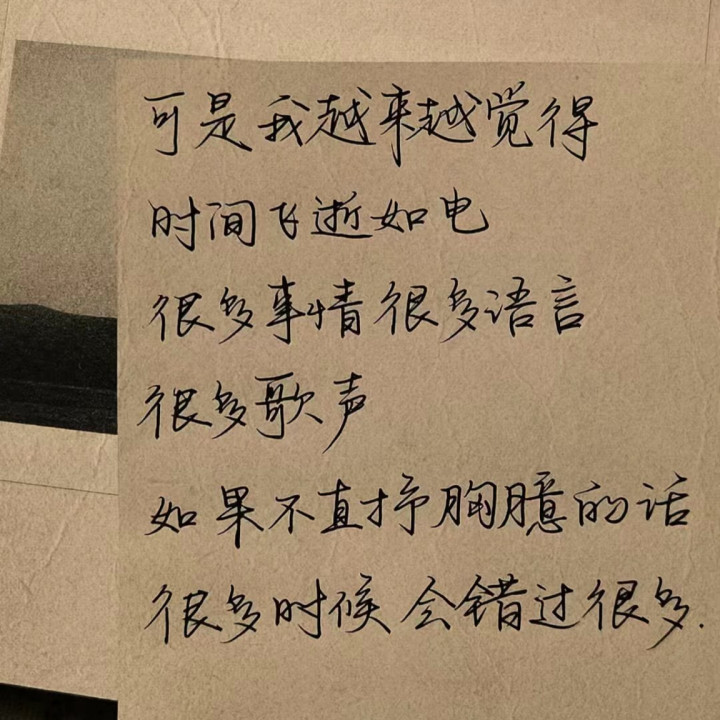 可是我越来越觉得
时间飞逝如电
很多事情很多语言
很多歌声
如果不直抒胸臆的话
很多时候会错过很多.